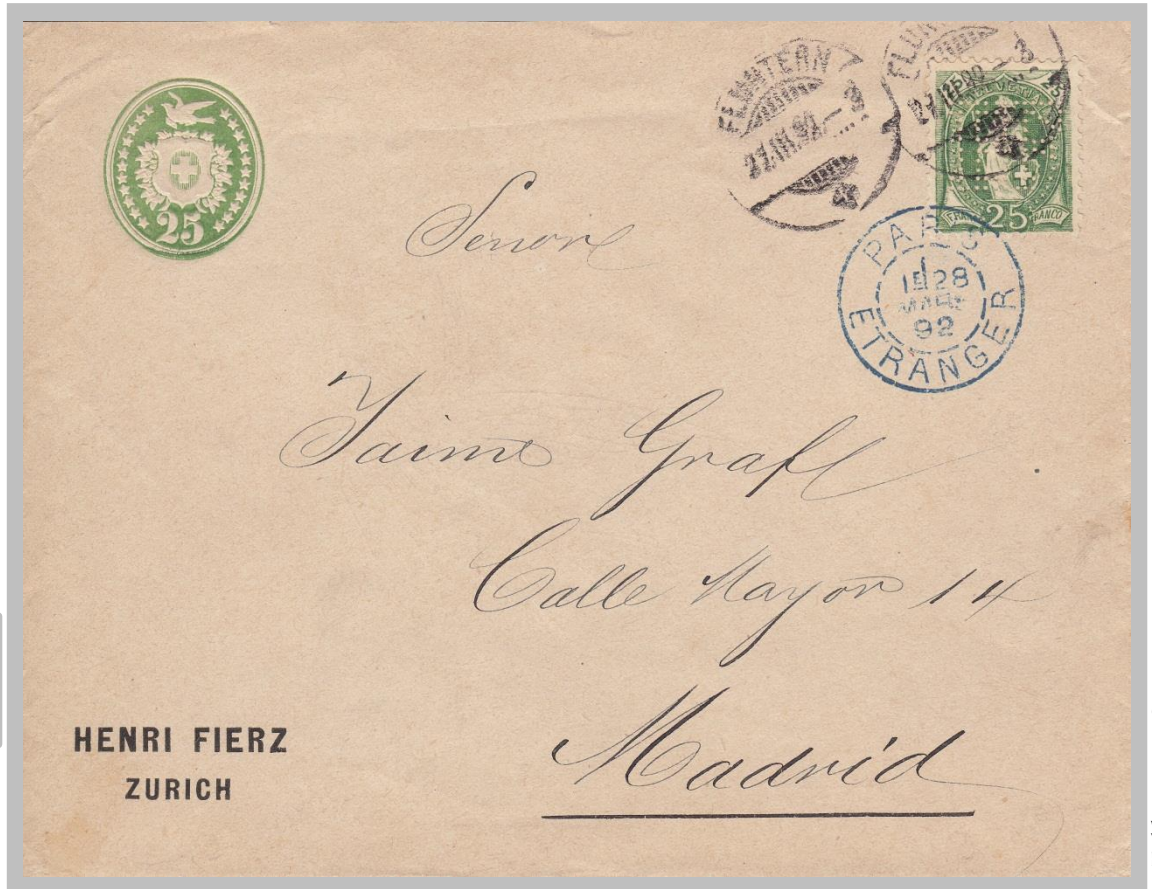 FLUNTERN
27.III.92.–3
FLUN
–3
HELVETIA
25
FRANCO
25
PARIS
1E
28
MARS
92
ETRANGER
Senor
Jaime Graf
Calle Mayor 14
Madrid
HENRI FIERZ
ZURICH